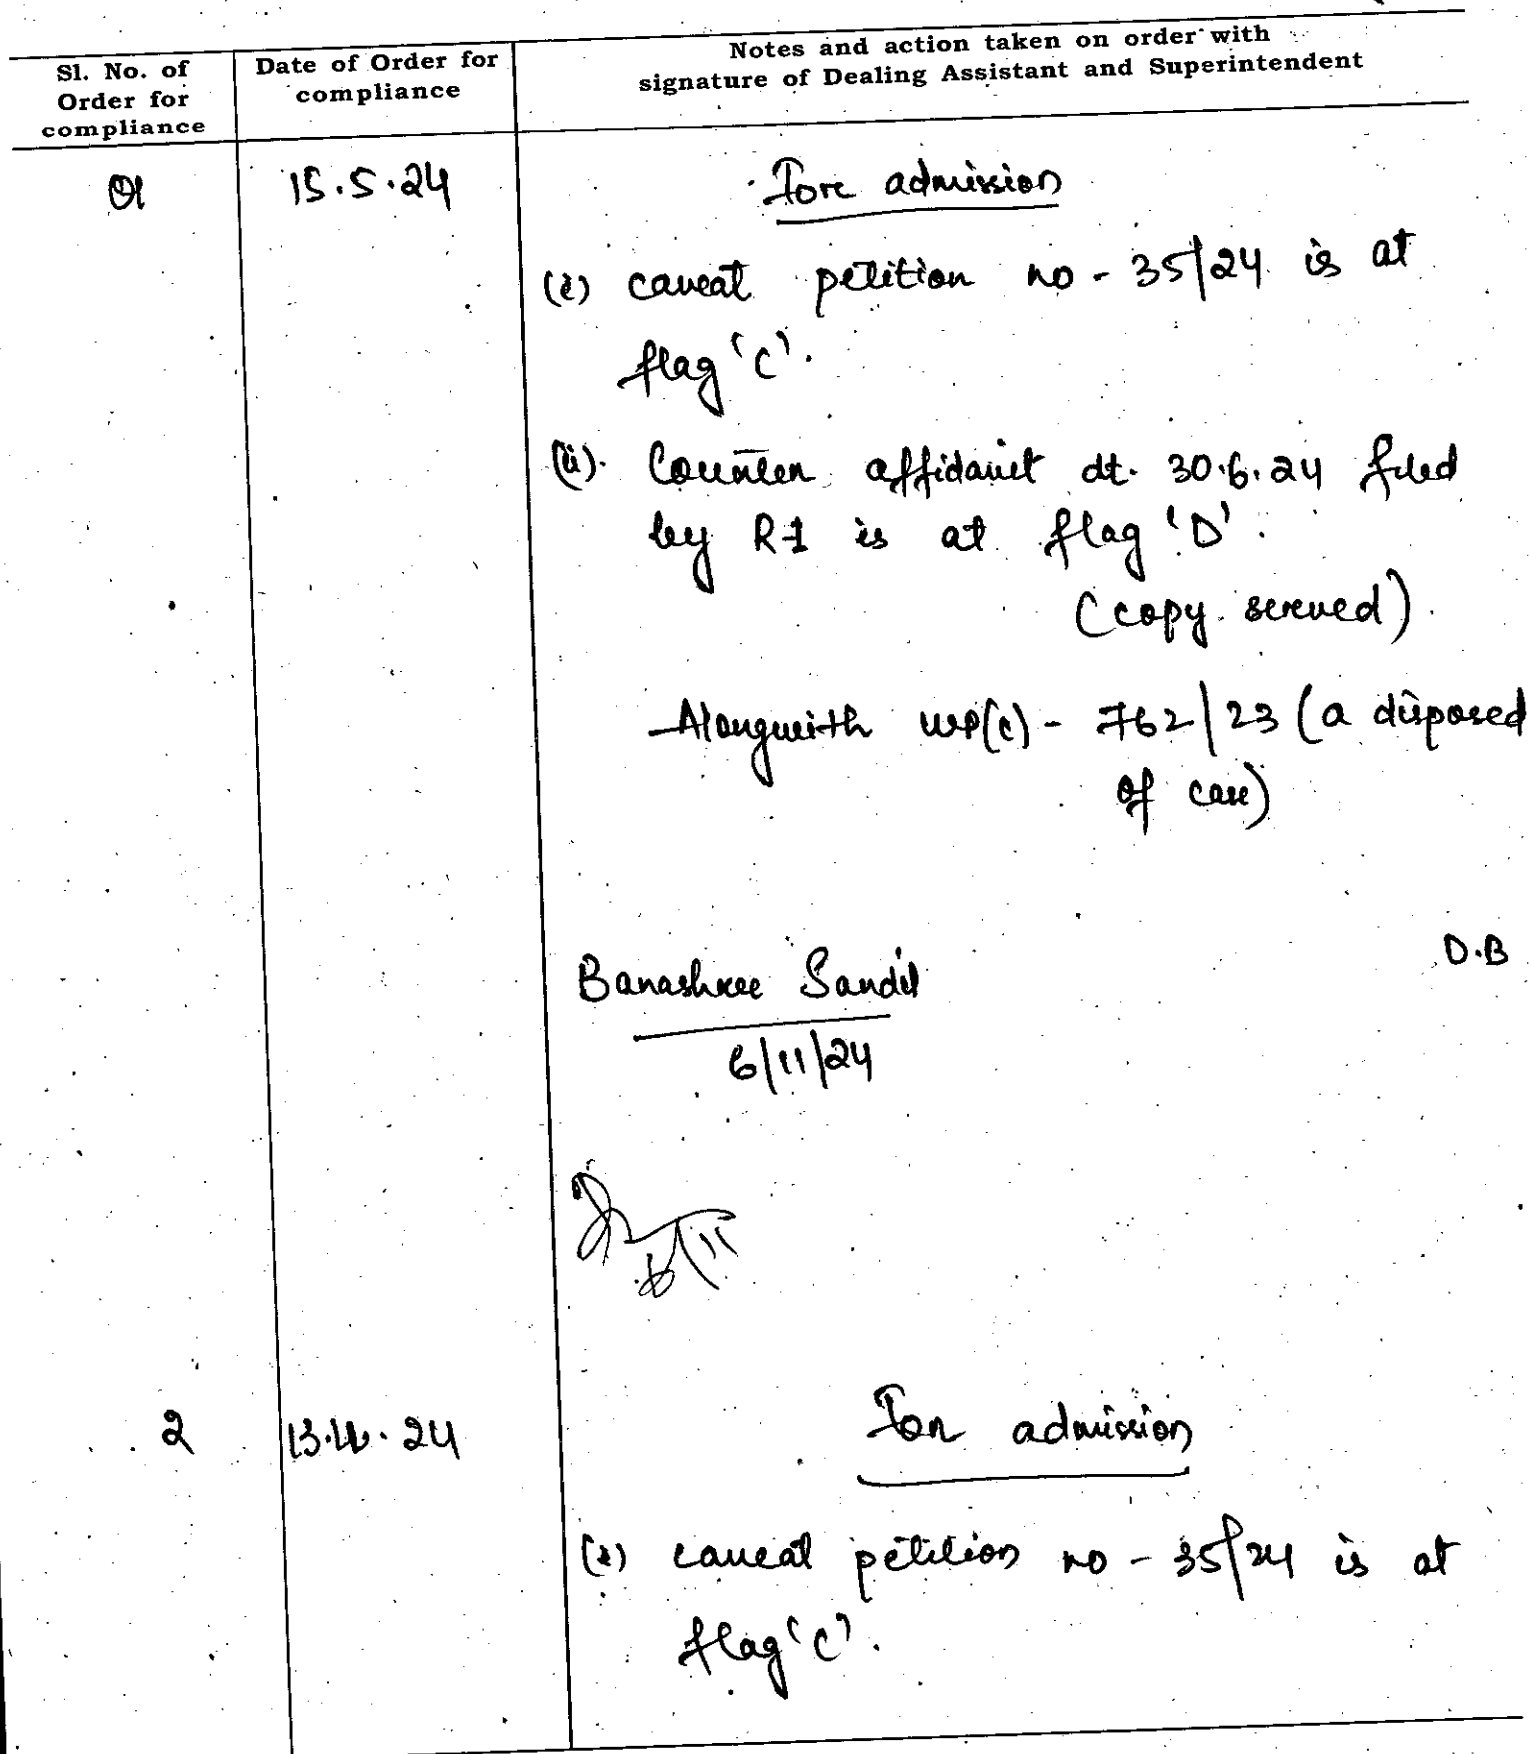 Sl. No. of
Order for
compliance
Date of Order for
compliance
Notes and action taken on order with
signature of Dealing Assistant and Superintendent
01
15.5.24
For admission
(i) caveat petition no - 35/24 is at
flag 'C'.
(ii). Counter affidavit dt. 30.6.24 filed
by R-1 is at flag 'D'.
(copy served).
Alongwith WP(C) - 762/23 (a disposed
of case)
D.B
Banashree Sandil
6/11/24
6/11
2
13.11.24
For admission
(i) caveat petition no - 35/24 is at
flag 'C'.